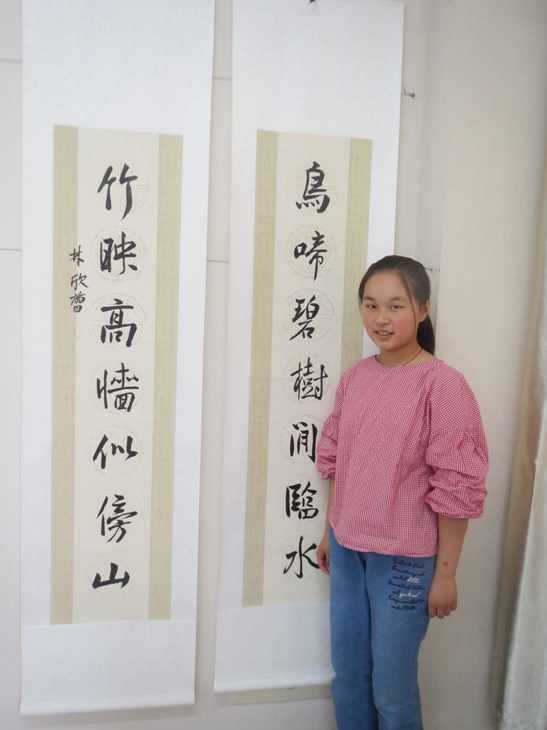 鳥啼碧樹閒臨水
竹映高牆似傍山
林欣